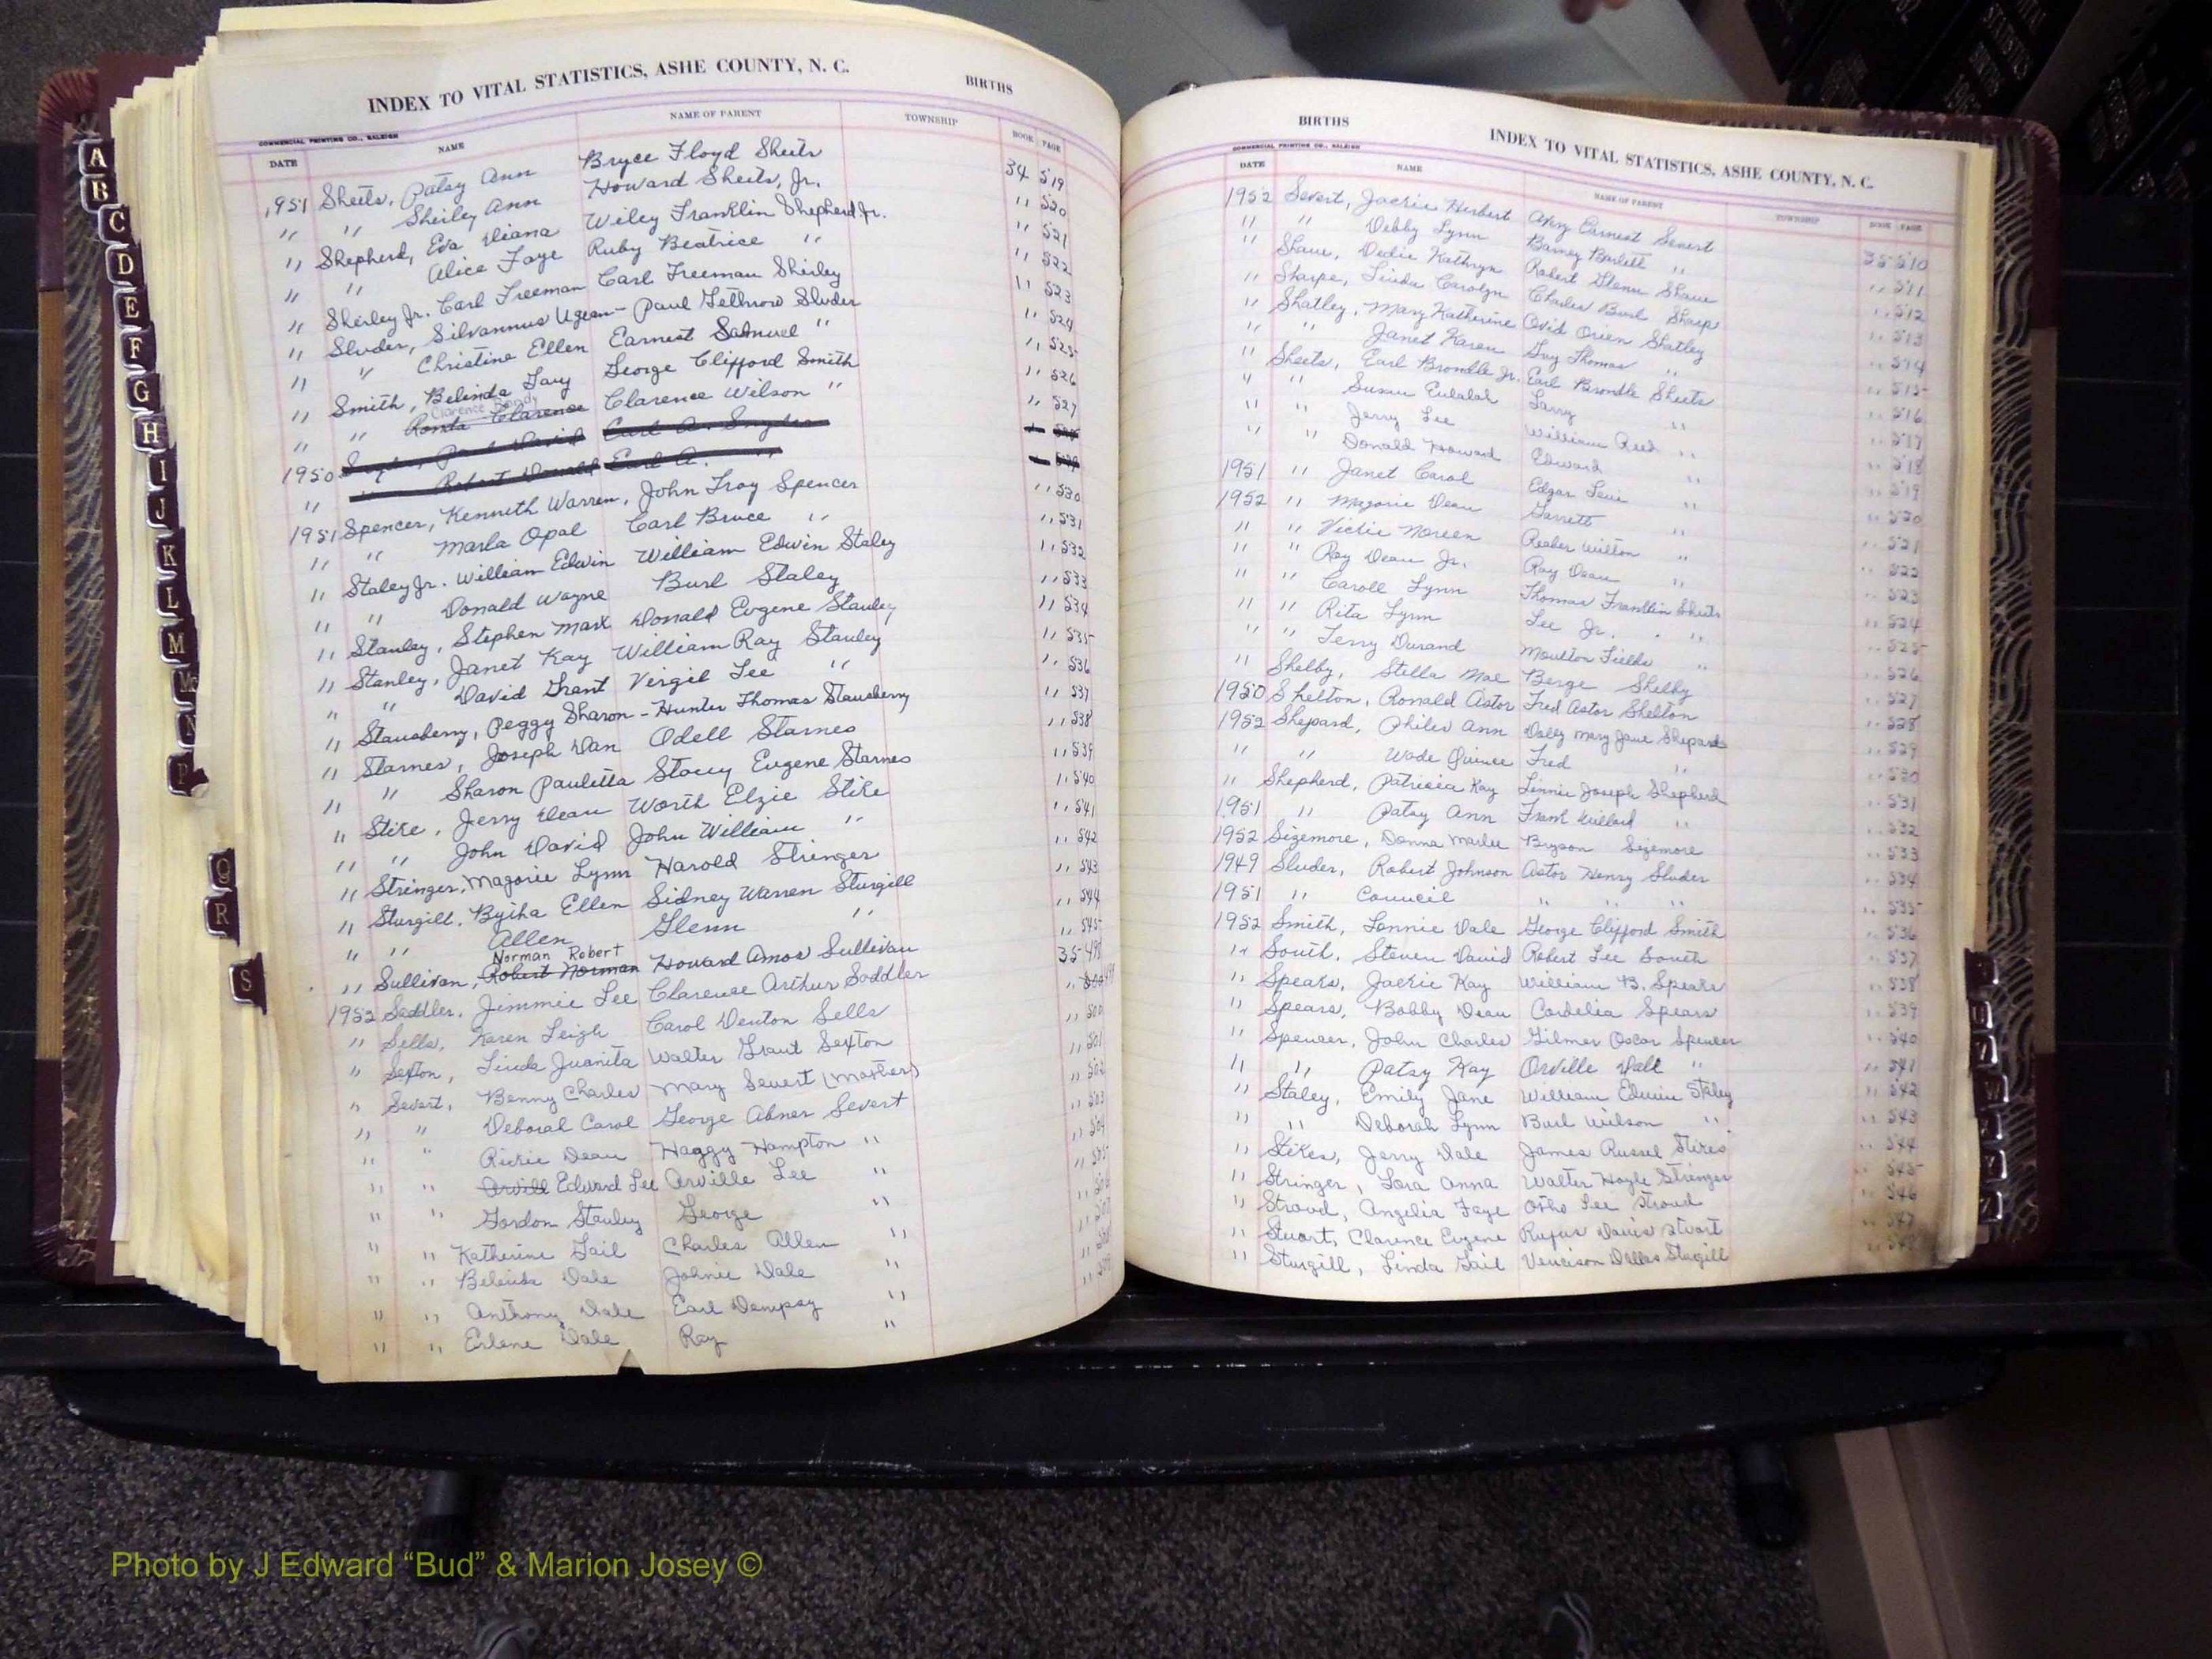 INDEX TO VITAL STATISTICS, ASHE COUNTY, N. C. BIRTHS
COMMERCIAL PRINTING CO., RALEIGH
DATE NAME NAME OF PARENT TOWNSHIP BOOK PAGE
1951 Sheets, Patsy Ann Bryce Floyd Sheets 34 519
" " Shirley Ann Howard Sheets, Jr. " 520
" Shepherd, Eva Diana Wiley Franklin Shepherd Jr. " 521
" " Alice Faye Ruby Beatrice " " 522
" Shirley Jr. Carl Freeman Carl Freeman Shirley " 523
" Sluder, Silvannus Ugean - Paul Sluder " 524
" " Christine Ellen Earnest Samuel " " 525
" Smith, Belinda George Clifford Smith " 526
" " Clarence Randy Clarence Wilson " " 527
1950 Paul David Earl A. Snyder
" " Robert Donald Earl A. "
1951 Spencer, Kenneth Warren, John Troy Spencer " 530
" " Marla Opal Carl Bruce " " 531
" Staley Jr. William Edwin William Edwin Staley " 532
" " Donald Wayne Burl Staley " 533
" Stanley, Stephen Mark Donald Eugene Stanley " 534
" Stanley, Janet Kay William Ray Stanley " 535
" " David Grant Virgil Lee " " 536
" Stansberry, Peggy Sharon - Hunter Thomas Stansberry " 537
" Starnes, Joseph Dan Odell Starnes " 538
" " Sharon Pauletta Stacey Eugene Starnes " 539
" Stike, Jerry Dean Worth Elzie Stike " 540
" " John David John William " " 541
" Stringer, Magorie Lynn Harold Stringer " 542
" Sturgill, Ellen Sidney Warren Sturgill " 543
" " Allen Glenn " " 544
Norman Robert
" Sullivan, Robert Norman Howard Amos Sullivan " 545
1952 Saddler, Jimmie Lee Clarence Arthur Saddler 35 498
" Sells, Karen Leigh Carol Denton Sells " 499
" Sexton, Linda Juanita Walter Grant Sexton " 500
" Severt, Benny Charles Mary Severt (Mother) " 501
" " Deborah Carol George Abner Severt " 502
" " Rickie Dean Haggy Hampton " " 503
" " Arvill Edward Lee Arville Lee " " 504
" " Gordon Stanley George " " 505
" " Katherine Gail Charles Allen "
" " Belinda Dale Johnie Dale "
" " Anthony Dale Earl Dempsey "
" " Erlene Dale Ray "
BIRTHS INDEX TO VITAL STATISTICS, ASHE COUNTY, N. C.
COMMERCIAL PRINTING CO., RALEIGH
DATE NAME NAME OF PARENT TOWNSHIP BOOK PAGE
1952 Severt, Jackie Herbert Avery Earnest Severt 35 510
" " Debby Lynn Barney Bartlett " " 511
" Shaw, Dedie Kathryn Robert Glenn Shaw " 512
" Sharpe, Linda Carolyn Charles Burl Sharp " 513
" Shatley, Mary Katherine Ovid Orien Shatley " 514
" " Janet Karen Guy Thomas " " 515
" Sheets, Earl Bromble Jr. Earl Bromble Sheets " 516
" " Susan Larry " " 517
" " Jerry Lee William Reed " " 518
" " Donald Howard Edward " " 519
1951 " Janet Carol Edgar Levi " " 520
1952 " Magorie Dean Garrett " 521
" " Vickie Noreen Reeber Wilton " " 522
" " Roy Dean Jr. Roy Dean " " 523
" " Caroll Lynn Thomas Franklin Sheets " 524
" " Rita Lynn Lee Jr. " " 525
" " Terry Durand Moulton Fields " " 526
" Shelby, Stella Mae Berge Shelby " 527
1950 Shelton, Ronald Astor Fred Astor Shelton " 528
1952 Shepard, Ann Dolly Mary Jane Shepard " 529
" " Wade Quince Fred " " 530
" Shepherd, Patricia Kay Linnie Joseph Shepherd " 531
1951 " Patsy Ann Frank Millard " " 532
1952 Sizemore, Donna Marlee Bryson Sizemore " 533
1949 Sluder, Robert Johnson Astor Henry Sluder " 534
1951 " Council " " " " 535
1952 Smith, Lonnie Dale George Clifford Smith " 536
" South, Steven David Robert Lee South " 537
" Spears, Jackie Kay William B. Spears " 538
" Spears, Bobby Dean Cordelia Spears " 539
" Spencer, John Charles Gilmer Oscar Spencer " 540
" " Patsy Kay Orville Dalt " " 541
" Staley, Emily Jane William Edwin Staley " 542
" " Deborah Lynn Burl Wilson " " 543
" Stikes, Jerry Dale James Russel Stikes " 544
" Stringer, Lora Anna Walter Hoyle Stringer " 545
" Stroud, Angelia Faye Otho Lee Stroud " 546
" Stuart, Clarence Eugene Rufus Davis Stuart " 547
" Sturgill, Linda Gail Dallas Sturgill " 548
A
B
C
D
E
F
G
H
I
J
K
L
M
Mc
N
P
Q
R
S
U
V
W
Y
Z
Photo by J Edward “Bud” & Marion Josey ©